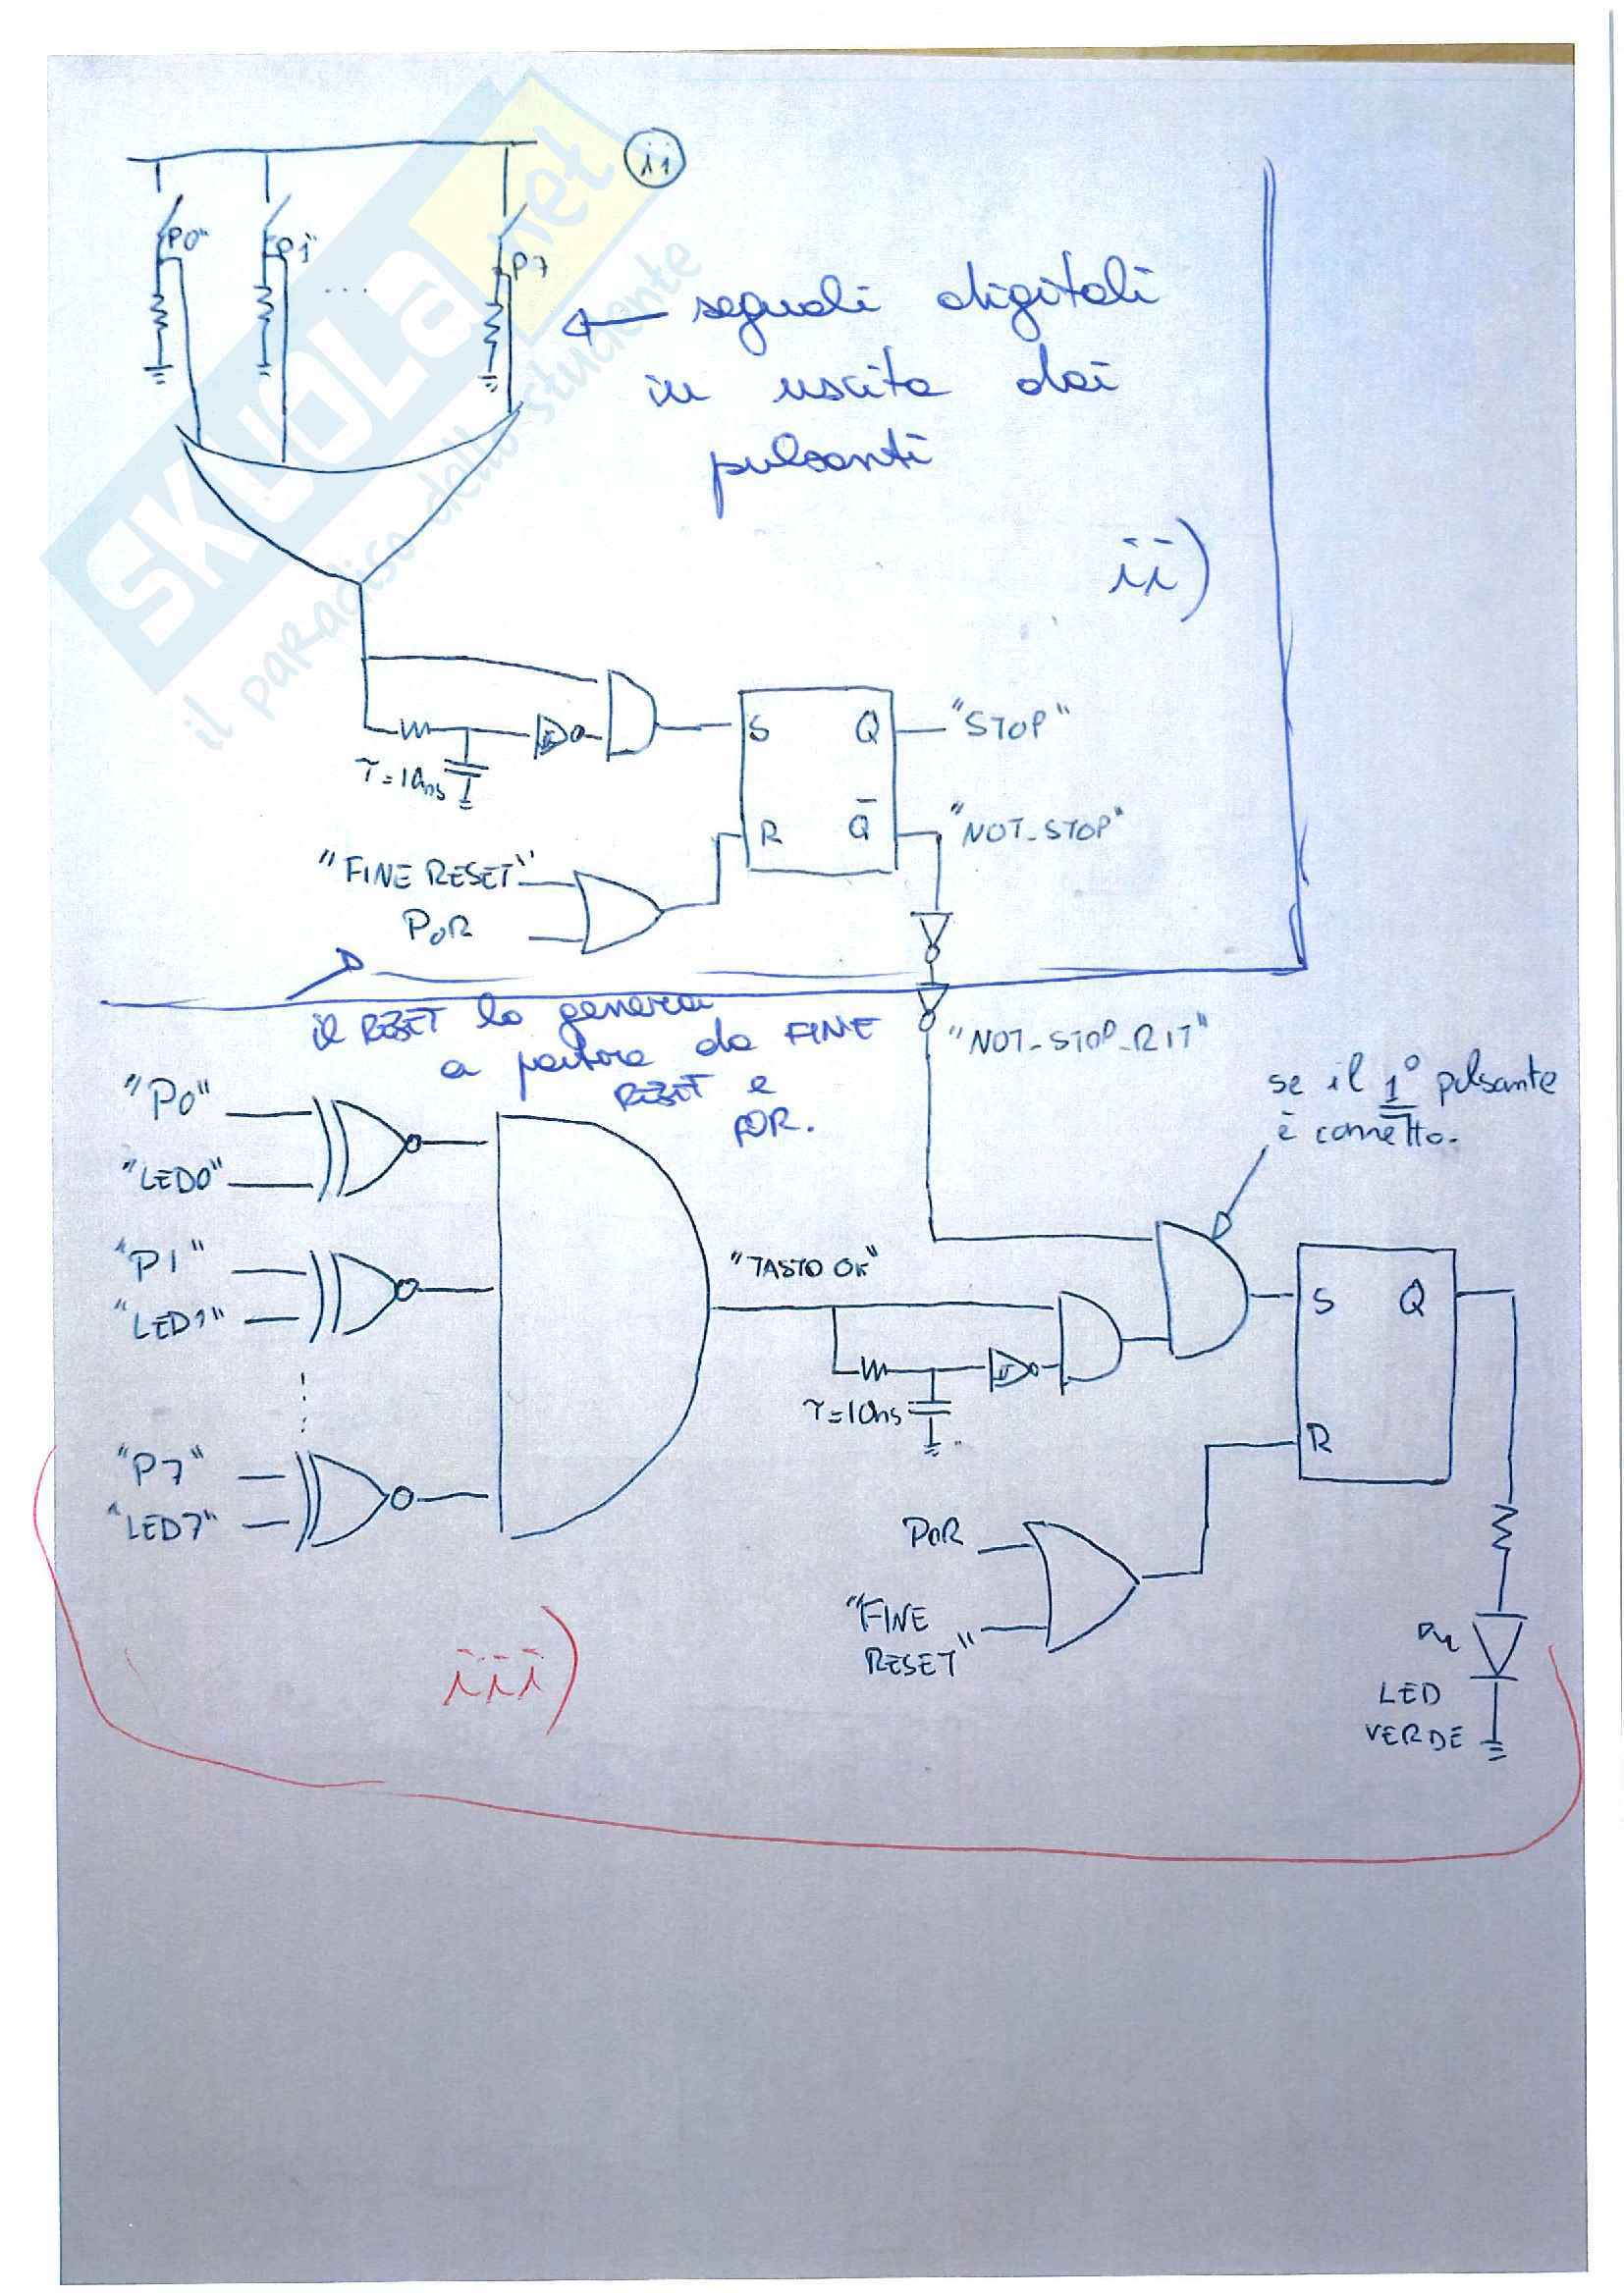 ii
"P0"
P1
P7
...
← segnali digitali
in uscita dai
pulsanti
ii)
SKUOLA.net
il paradiso dello studente
τ=10ns
S Q
"STOP"
R Q̅
"NOT_STOP"
"FINE RESET"
POR
il RESET lo genera
a partire da FINE
RESET e
POR.
"NOT-STOP-RIT"
se il 1° pulsante
è corretto.
"P0"
"LED0"
"P1"
"LED1"
"P7"
"LED7"
"TASTO OK"
τ=10ns
S Q
R
POR
"FINE
RESET"
LED
VERDE
iii)